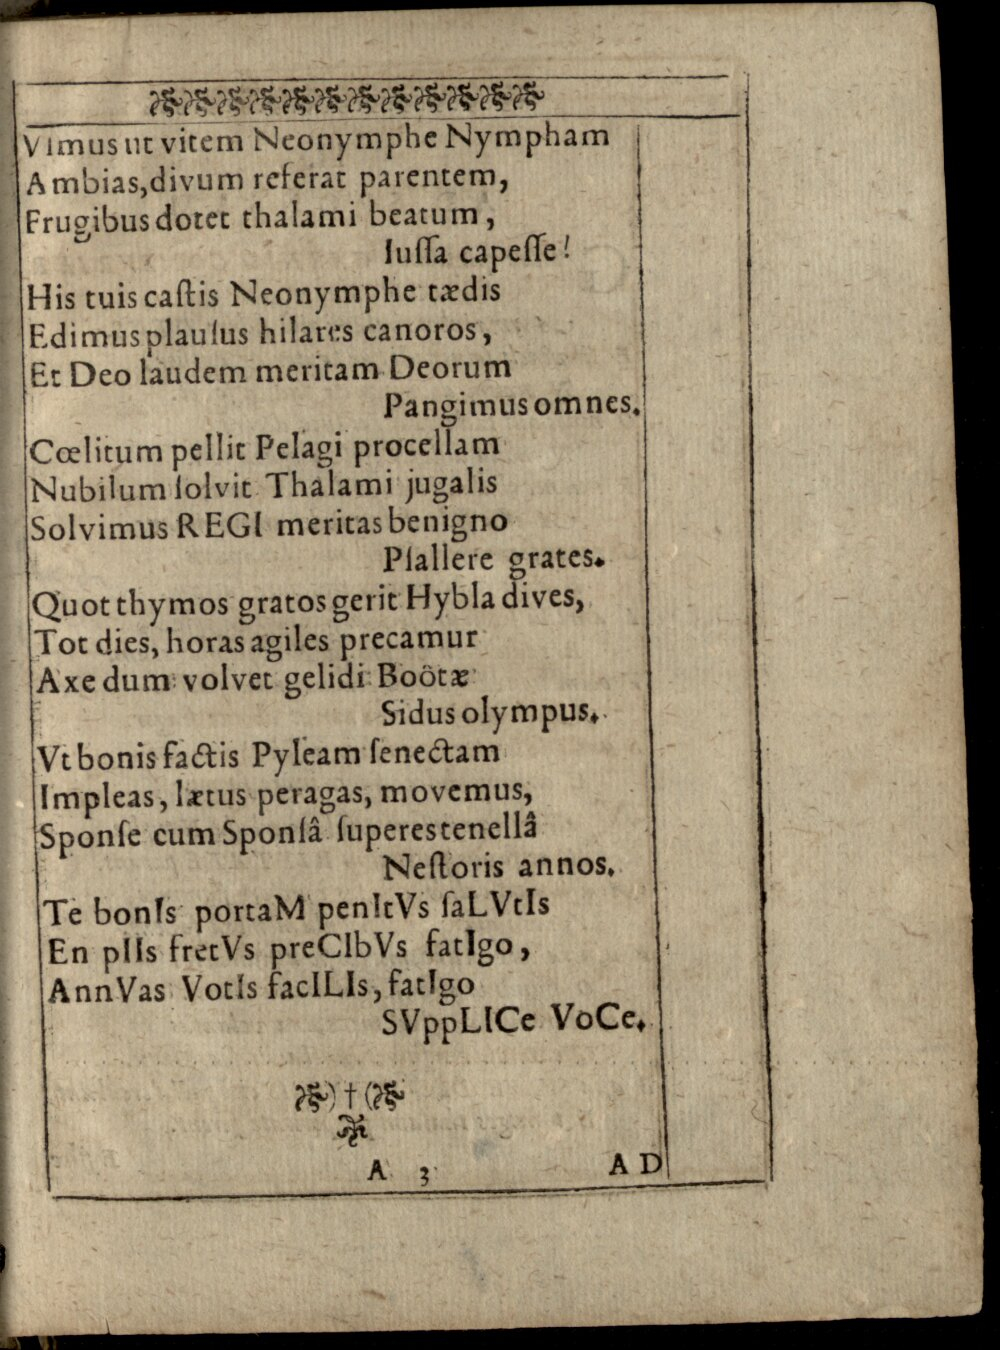 Vimus ut vitem Neonymphe Nympham
Ambias, divum referat parentem,
Frugibus dotet thalami beatum,
Iuſſa capeſſe!
His tuis caſtis Neonymphe tædis
Edimus plauſus hilares canoros,
Et Deo laudem meritam Deorum
Pangimus omnes.
Cœlitum pellit Pelagi procellam
Nubilum ſolvit Thalami jugalis
Solvimus REGI meritas benigno
Pſallere grates.
Quot thymos gratos gerit Hybla dives,
Tot dies, horas agiles precamur
Axe dum volvet gelidi Boôtæ
Sidus olympus.
Vt bonis factis Pyleam ſenectam
Impleas, lætus peragas, movemus,
Sponſe cum Sponſâ ſuperes tenellâ
Neſtoris annos.
Te bonIs portaM penItVs ſaLVtIs
En pIIs fretVs preCIbVs fatIgo,
AnnVas VotIs facILIs, fatIgo
SVppLICe VoCe.
) † (
A 3 AD